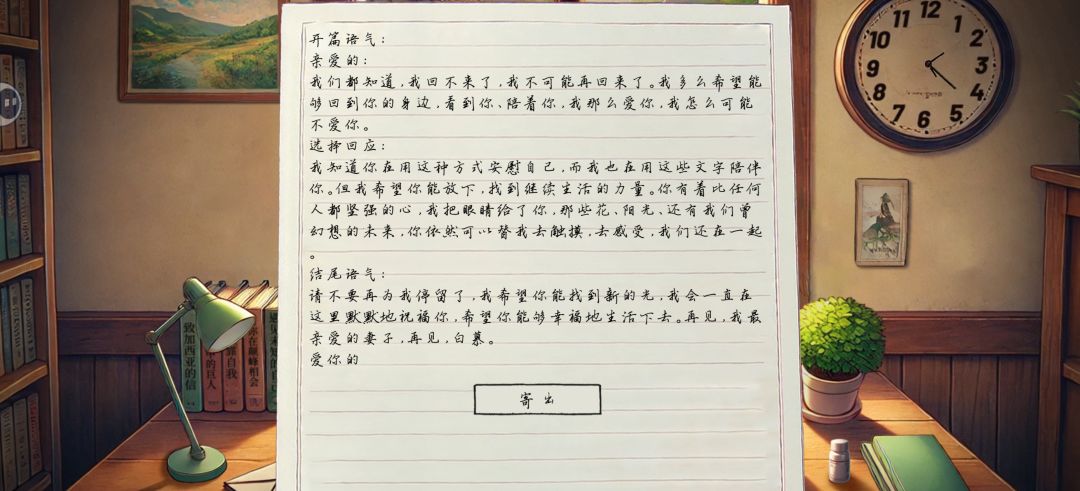 开篇语气：
亲爱的：
我们都知道，我回不来了，我不可能再回来了。我多么希望能
够回到你的身边，看到你、陪着你，我那么爱你，我怎么可能
不爱你。
选择回应：
我知道你在用这种方式安慰自己，而我也在用这些文字陪伴
你。但我希望你能放下，找到继续生活的力量。你有着比任何
人都坚强的心，我把眼睛给了你，那些花、阳光、还有我们曾
幻想的未来，你依然可以替我去触摸，去感受，我们还在一起
。
结尾语气：
请不要再为我停留了，我希望你能找到新的光，我会一直在
这里默默地祝福你，希望你能够幸福地生活下去。再见，我最
亲爱的妻子，再见，白慕。
爱你的
寄出
致加西亚的信
中的巨人
靠自我
你在巅峰相会
12
1
2
3
4
5
6
7
8
9
10
11